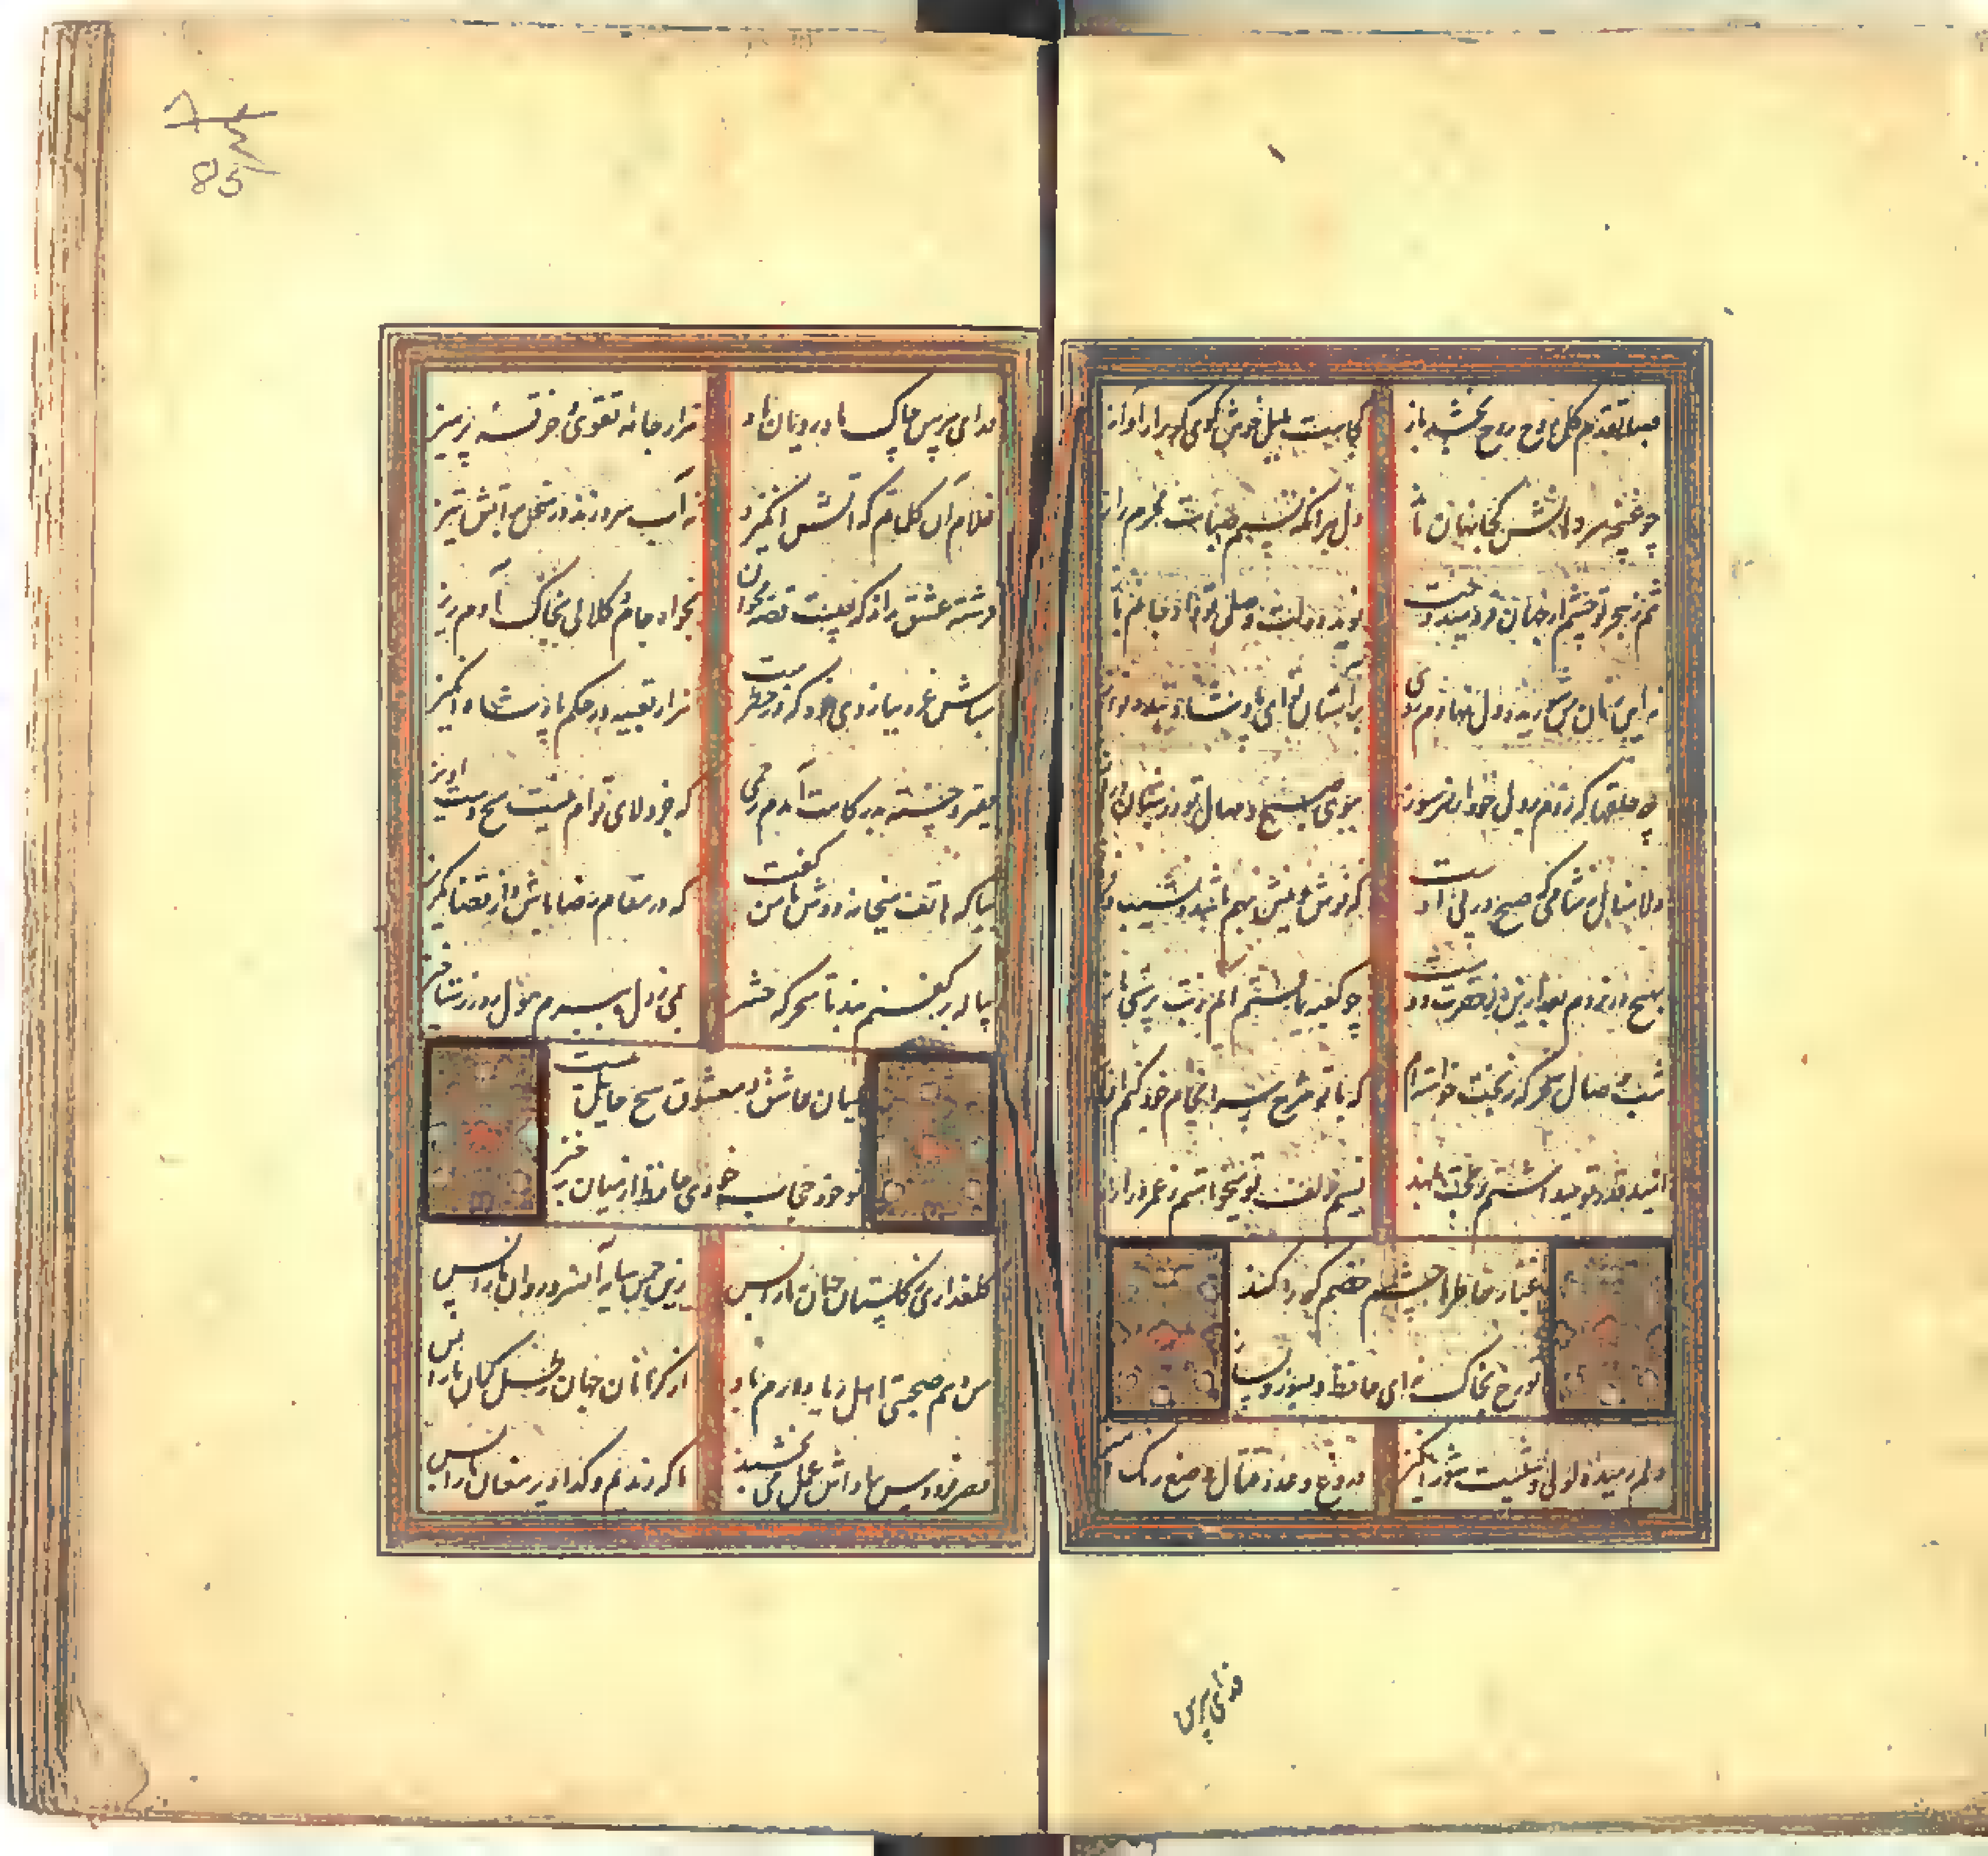 صبا بمقدم گل روح روح بخشد باز
کجاست بلبل خوش گوی گو برار آواز
چو غنچه سر درونش کجا نهان ماند
دل مرا که نسیم صباست محرم راز
غم هجر تو چشم از جهان فرو میدوخت
نوید دولت وصل تو داد جانم باز
بر آستان تو ای پادشاه
چه حلقها که زدم بر دل خود از سر سوز
ببوی صبح وصال تو در شبان دراز
دلا منال ز شامی که صبح در پی اوست
که نوش و نیش بهم باشد و نشیب و فراز
بهیچ در نروم بعد ازین ز حضرت دوست
چو کعبه یافتم
شب وصال سحرگه ز بخت خواسته‌ام
که با تو شرح سرانجام خود کنم آغاز
امید قد تو میداشتم ز بخت بلند
نسیم زلف تو میخواستم ز عمر دراز
غبار خاطر ما چشم خصم کور کند
تو رخ بخاک نه ای حافظ و بسوز و بساز
دلم رمیده لولی وشیست شورانگیز
دروغ وعده و قتال وضع و رنگ آمیز
فدای پرس
فدای پیرهن چاک ماه رویان باد
هزار جامه تقوی و خرقه پرهیز
غلام آن کلماتم که آتش انگیزد
نه آب سرد زند در سخن بر آتش تیز
فرشته عشق نداند که چیست قصه مخوان
بخواه جام و گلابی بخاک آدم ریز
مباش غره ببازوی خود که در خبرست
هزار تعبیه در حکم پادشاه انگیز
فقیر و خسته بدرگاهت آمدم رحمی
که جز ولای توام نیست هیچ دست آویز
بیا که هاتف میخانه دوش با من گفت
که در مقام رضا باش و از قضا مگریز
پیاله بر کفنم بند تا سحرگه حشر
بمی ز دل ببرم هول روز رستاخیز
میان عاشق و معشوق هیچ حایل نیست
تو خود حجاب خودی حافظ از میان برخیز
گلعذاری ز گلستان جهان ما را بس
زین چمن سایه آن سرو روان ما را بس
من و هم صحبتی اهل ریا دورم باد
از گرانان جهان رطل گران ما را بس
قصر فردوس بپاداش عمل می بخشند
ما که رندیم و گدا دیر مغان ما را بس
85